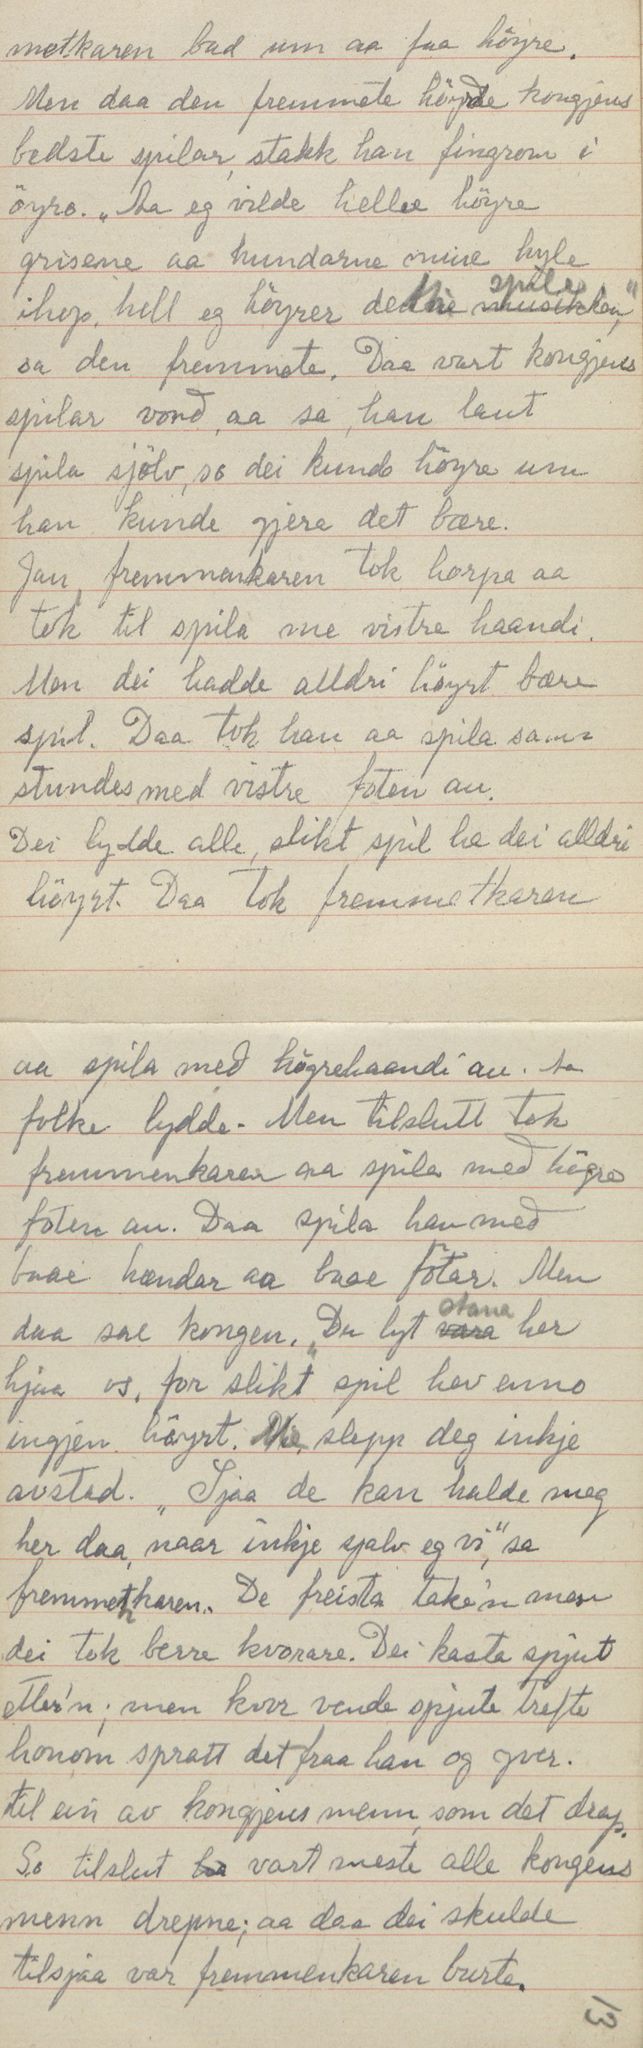 metkaren bad um aa faa höyre.
Men daa den fremmete höyrde kongjens
bedste spilar, stakk han fingrom i
öyro. "Aa eg vilde helle höyre
grisene aa hundarne mine hyle
ihop, hell eg höyrer denne musikken spele,"
sa den fremmete. Daa vart kongjens
spilar vond, aa sa, han laut
spila sjölv, so dei kunde höyre um
han kunde gjera det bære.
Jau, fremmenkaren tok horpa aa
tok til spila me vistre haandi.
Men dei hadde alldri höyrt bære
spil. Daa tok han aa spila sam-
stundes med vistre foten au.
Dei lydde alle, slikt spil ha dei alldri
höyrt. Daa tok fremmetkaren
aa spila med högrehaandi au. Aa
folke lydde. Men tilslutt tok
fremmenkaren aa spila med högre
foten au. Daa spila han med
baae hændar aa baae fötar. Men
daa sae kongen. "Du lyt vara stana her
hjaa os, for slikt spil hev enno
ingjen höyrt. Me slepp deg inkje
avstad. "Sjaa de kan halde meg
her daa, naar inkje sjalv eg vi," sa
fremmenkaren. De freista take'n men
dei tok berre kvorare. Dei kasta spjut
etter'n; men kvor vende spjute trefte
honom spratt det fraa han og yver.
til ein av kongjens menn, som det drap.
So tilslut vart meste alle kongens
menn drepne; aa daa dei skulde
tilsjaa var fremmenkaren burte.
13